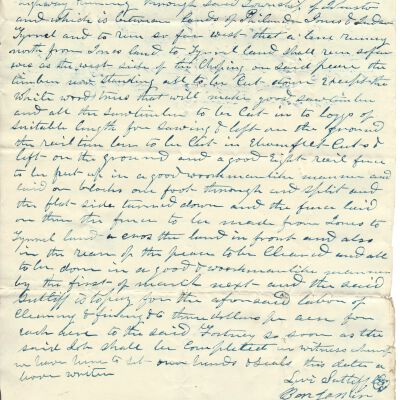 highway running through said Township of Johnston
and which is between lands of Philander Jones &
Tyrrel and to run so far west that a line runing
north from Jones land to Tyrrel land shall run so far
west as the west side of the Choping on said peace the
timber now standing all to be Cut down Except the
white wood trees that will make good sawtimber
and all the sawtimber to be Cut in to loggs of
suitable length for sawing & left on the ground
the rail timber to be Cut in Eleven feet Cuts &
left on the ground and a good Eight rail fence
to be put up in a good workmanlike manner and
laid on blocks one foot through and split and
the flat side turned down and the fence laid
on them the fence to be made from Jones to
Tyrrel land across the land in front and also
in the rear of the peace to be Cleared and all
to be done in a good & workmanlike manner
by the first of march next and the said
Sutliff is to pay for the aforesaid labor of
Clearing & fencing &c three dollars per acre for
each acre to the said so soon as the
said Job shall be Completed in witness whereof
we have here to set our hands & seals this date a
bove writen
Levi Sutliff